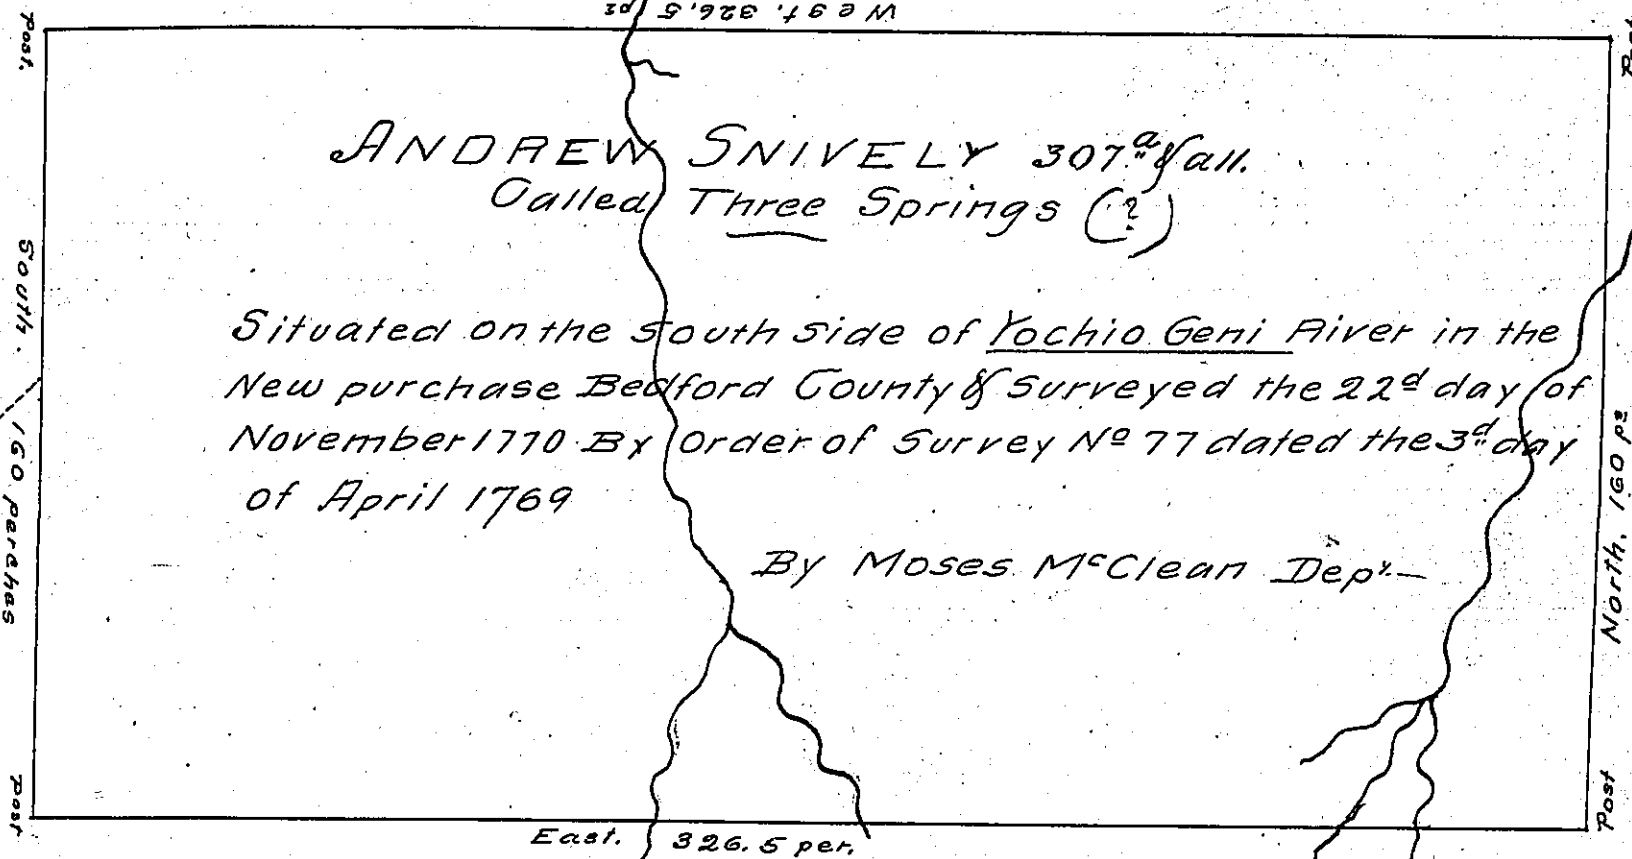 West. 326.5 ps
Post.
Post
ANDREW SNIVELY 307.a & all.
Called Three Springs (?)
South. 160 perches
Situated on the south side of Yochio Geni River in the
New purchase Bedford County & Surveyed the 22d day of
November 1770 By Order of Survey No 77 dated the 3d day
of April 1769
North. 160 ps
By Moses McClean Depy.
Post
Post
East. 326.5 per.